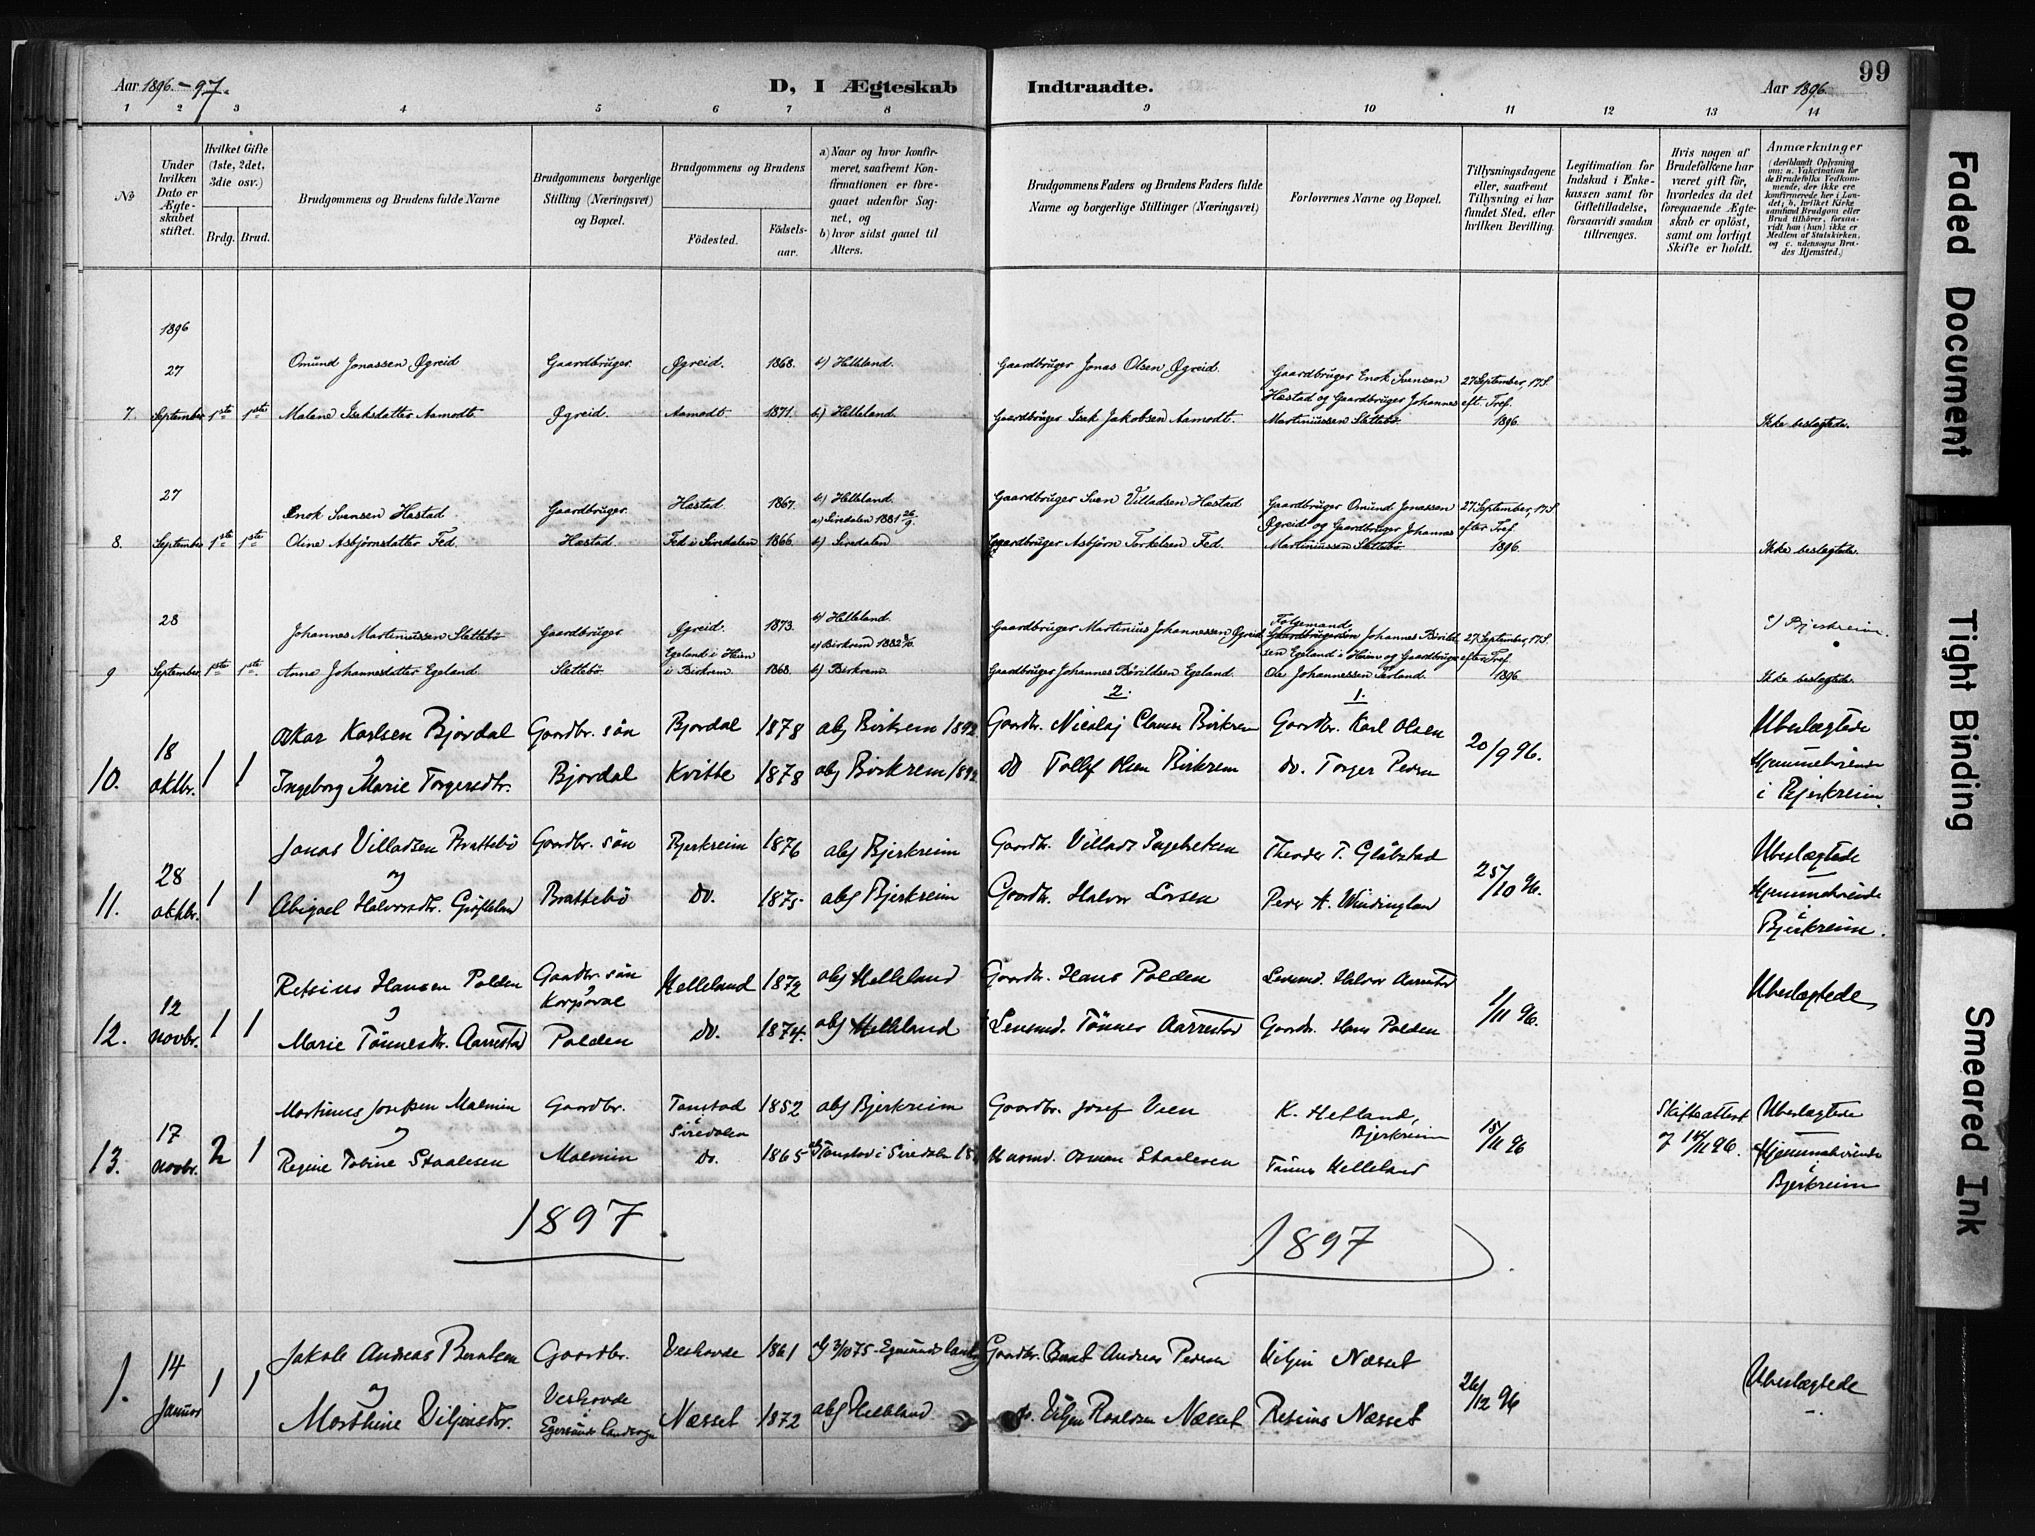 99
Aar 1896 - 97. D, I Ægteskab Indtraadte. Aar 1896.
1 2 3 4 5 6 7 8 9 10 11 12 13 14
No
Under hvilken Dato er Ægteskabet stiftet.
Hvilket Gifte (1ste, 2det, 3die osv.)
Brdg. Brud.
Brudgommens og Brudens fulde Navne
Brudgommens borgerlige Stilling (Næringsvei) og Bopæl.
Brudgommens og Brudens
Fødested.
Fødselsaar.
a) Naar og hvor konfirmeret, saafremt Konfirmationen er foregaaet udenfor Sognet, og
b) hvor sidst gaaet til Alters.
Brudgommens Faders og Brudens Faders fulde Navne og borgerlige Stillinger (Næringsvei)
Forlovernes Navne og Bopæl.
Tillysningsdagene eller, saafremt Tillysning ei har fundet Sted, efter hvilken Bevilling.
Legitimation for Indskud i Enkekassen samt for Giftetilladelse, forsaavidt saadan tiltrænges.
Hvis nogen af Brudefolkene har været gift før, hvorledes da det foregaaende Ægteskab er opløst, samt om lovligt Skifte er holdt.
Anmærkninger
(deriblandt Oplysning om: a. Vakcination for de Brudefolks Vedkommende, der ikke ere konfirmerede her i Landet; b. hvilket Kirkesamfund Brudgom eller Brud tilhører, forsaavidt han (hun) ikke er Medlem af Statskirken, og c. udensogns Brudes Hjemsted.)
1896
27 Omund Jonassen Øgreid Gaardbruger. Øgreid. 1868. b) Helleland. Gaardbruger Jonas Olsen Øgreid. Gaardbruger Enok Svensen 27 September, 17 S.
Hæstad og Gaardbruger Johannes eft. Tref.
7. September 1ste 1ste Malene Isaksdatter Aamodt. Øgreid. Aamodt. 1871. b) Helleland Gaardbruger Isak Jakobsen Aamodt. Martiniussen Slettebø. 1896. Ikke beslægtede.
27 Enok Svensen Hæstad. Gaardbruger. Hæstad. 1867. b) Helleland. Gaardbruger Sven Villadsen Hæstad Gaardbruger Omund Jonassen 27 September, 17 S.
a) Siredalen 1881 Øgreid og Gaardbruger Johannes efter Tref.
8. September 1ste 1ste Oline Asbjørnsdatter Fed. Hæstad. Fed i Siredalen 1866. b) Siredalen Gaardbruger Asbjørn Torkelsen Fed. Martiniussen Slettebø. 1896. Ikke beslægtede.
28 Johannes Martiniussen Slettebø Gaardbruger Øgreid. 1873. b) Helleland. Gaardbruger Martinius Johannessen Øgreid Følgemand Johannes Bórild- 27 September, 17 S. c) Bjerkreim.
Egeland i Heien a) Birkrem 1882 sen Egeland i Heien og Gaardbruger efter Tref.
9 September. 1ste 1ste. Anna Johannesdatter Egeland. Slettebø. i Birkrem 1868. b) Birkrem. Gaardbruger Johannes Bórildsen Egeland. Ole Johannessen 1896. Ikke beslægtede.
2. 1.
18 Oskar Karlsen Bjordal Gaardbr. søn Bjordal 1878 abf Birkrem 1892. Gaardbr. Nicolaj Clausen Birkrem Gaardbr. Karl Olsen 20/9 96. Ubeslægtede
og
10. oktbr. 1 1 Ingeborg Marie Torgersdtr. Bjordal Kvitte 1878 abf Birkrem 1892. do Tollf Olsen Birkrem do. Torger Pedersen Hjemmehørende
i Bjerkreim.
28 Jonas Villadsen Brattebø Gaardbr. søn Bjerkreim 1876 abf Bjerkreim Gaardbr. Villads Ingebretsen Theodor T. 25/10 96. Ubeslægtede
og
11. oktbr. 1 1 Abigael Halvorsdtr. Brattebø do. 1875 abf Bjerkreim Gaardbr. Halvor Peder A. Hjemmehørende
i Bjerkreim.
12 Retsius Hansen Polden Gaardbr. søn Helleland 1872 abf Helleland Gaardbr. Hans Polden Lensmd. Halvor Aarrestad 1/11 96. Ubeslægtede
og Korporal
12. novbr. 1 1 Marie Tønnesdtr. Aarrestad Polden do. 1874. abf Helleland Lensmd. Tønnes Aarrestad Gaardbr. Hans Polden
17 Martinus Josefsen Malmin Gaardbr. Tonstad 1852 abf Bjerkreim Gaardbr. Josef K. Hetland, 15/11 96 Skifteattest Ubeslægtede
og Siredalen Bjerkreim af 14/11 96.
13. novbr. 2 1 Regine Tobine Staalesen Malmin do. 1865 abf Tonstad i Siredalen Husmd. Osmun Staalesen Tønnes Helleland Hjemmehørende
i Bjerkreim
1897. 1897
14 Jakob Andreas Berntsen Gaardbr. Veshovde 1861 af 3/10 75 Egersunds landsogn Gaardbr. Bernt Andreas Pedersen Viljen Næsset 26/12 96 Ubeslægtede
og Veshovde
1. Januar 1 1 Marthine Viljensdtr. Egersunds landsogn Næsset 1872 abf Helleland do. Viljen Næsset Retsius Næsset
Faded Document
Tight Binding
Smeared Ink